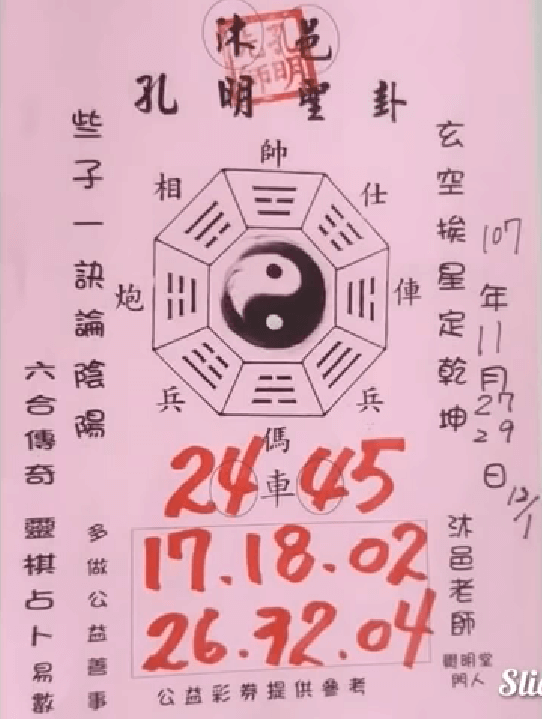 沐邑
孔明聖卦
玄空挨星定乾坤
些子一訣論陰陽
六合傳奇 靈棋占卜易數
帥
相
仕
炮
俥
兵
兵
傌
車
24 45
17.18.02
26.32.04
107年11月27
29日
12/1
沐邑老師
門人
多做公益善事
公益彩券提供參考